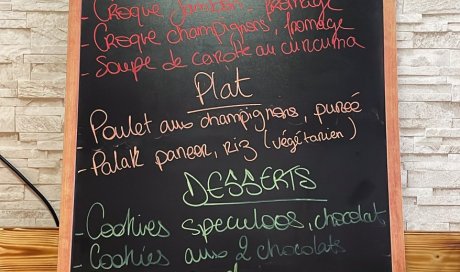 - Croque jambon, fromage
- Croque champignons, fromage
- Soupe de carotte au curcuma
Plat
- Poulet aux champignons, purée
- Palak paneer, riz (végétarien)
DESSERTS
- Cookies speculoos, chocolat
- Cookies aux 2 chocolats